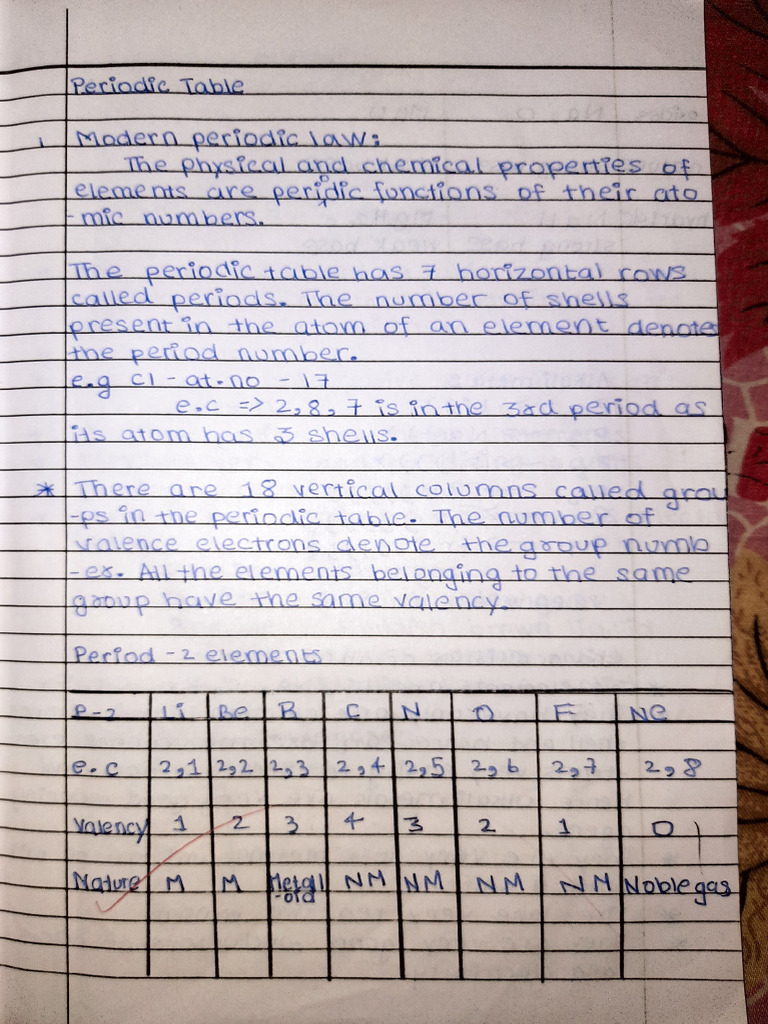 Periodic Table
Modern periodic law:
The physical and chemical properties of
elements are periodic functions of their ato
-mic numbers.
The periodic table has 7 horizontal rows
called periods. The number of shells
present in the atom of an element denotes
the period number.
e.g Cl - at.no - 17
e.c => 2,8,7 is in the 3rd period as
its atom has 3 shells.
* There are 18 vertical columns called grou
-ps in the periodic table. The number of
valence electrons denote the group numb
-er. All the elements belonging to the same
group have the same valency.
Period - 2 elements
P-2 Li Be B C N O F Ne
e.c 2,1 2,2 2,3 2,4 2,5 2,6 2,7 2,8
Valency 1 2 3 4 3 2 1 0
Nature M M Metall NM NM NM NM Noble gas
-oid